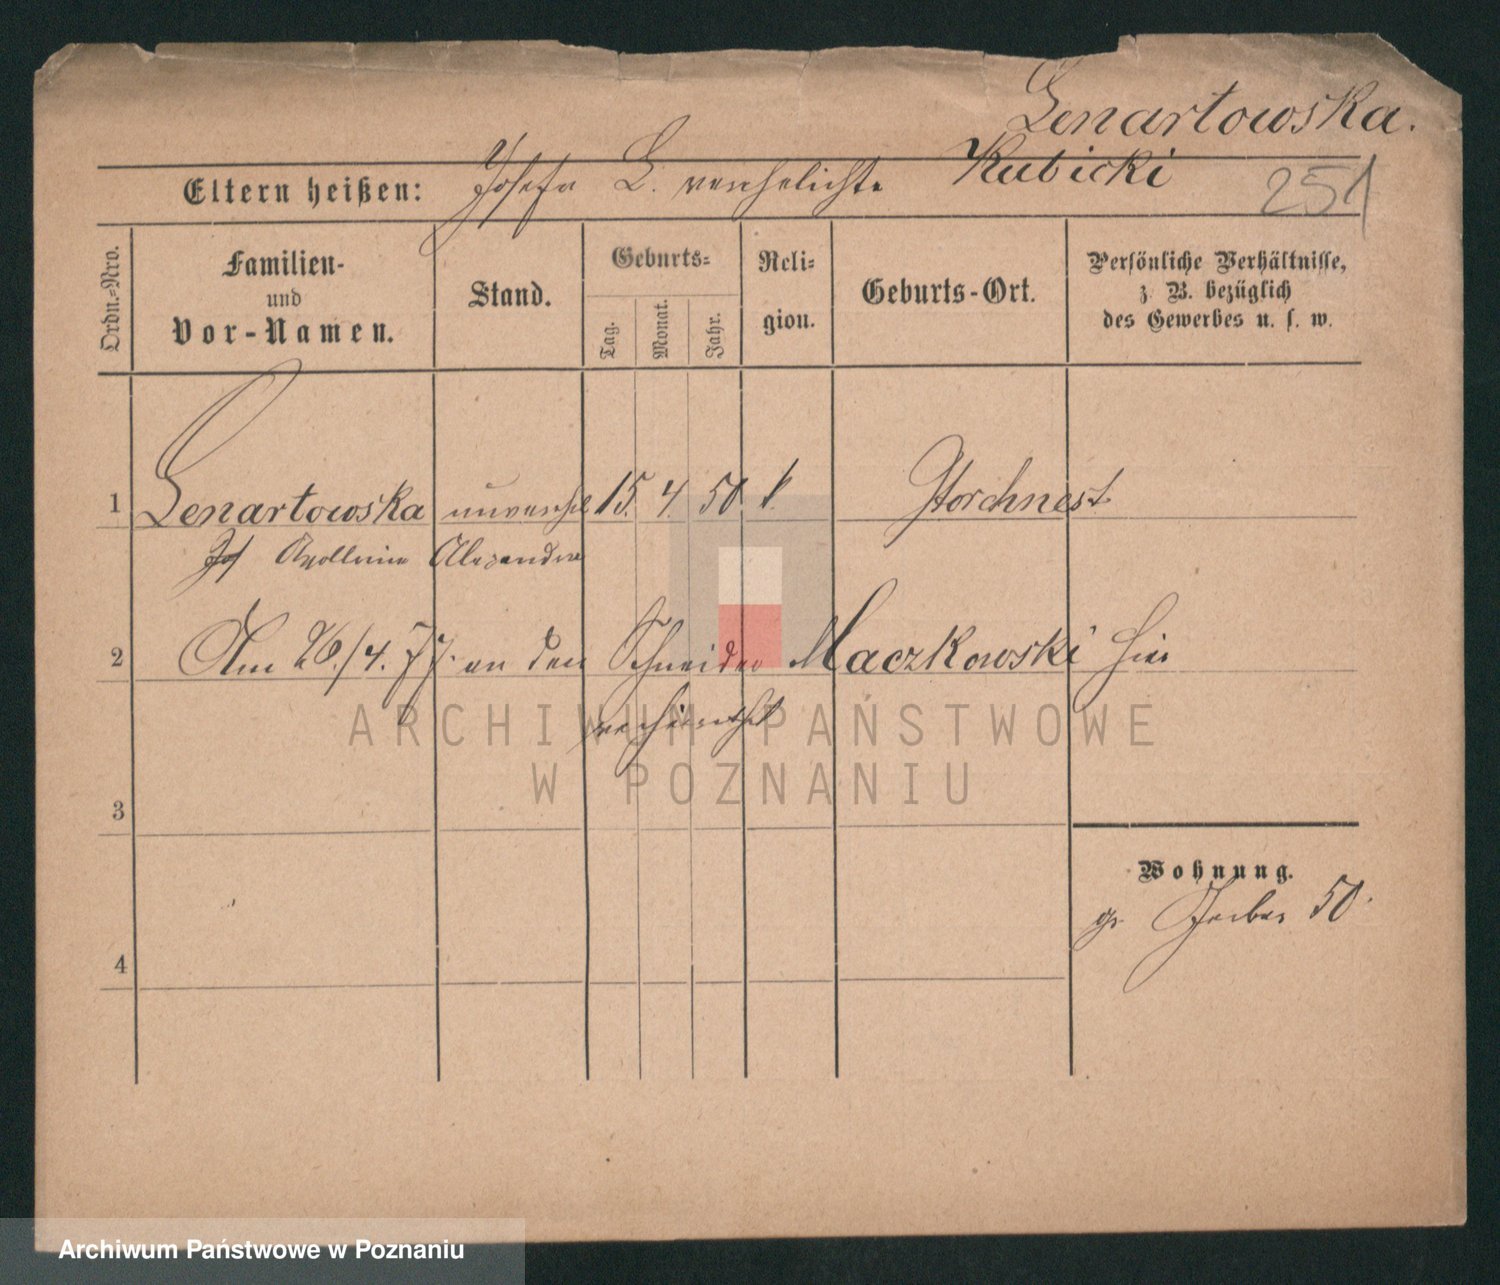 Lenartowska.
Eltern heißen: Josefa L. verehelichte Kubicki
251
Ordn.-Nro.
Familien-
und
Vor-Namen.
Stand.
Geburts-
Tag.
Monat.
Jahr.
Reli-
gion.
Geburts-Ort.
Persönliche Verhältnisse,
z. B. bezüglich
des Gewerbes u. s. w.
1 Lenartowska unverehel 15. 4. 50 k. Storchnest
Jos Apollonia Alexandra
2 Am 26./4. 77. an den Schneider Maczkowski hier
verheirathet
3
Wohnung.
gr Gerber 50.
4
ARCHIWUM PAŃSTWOWE
W POZNANIU
Archiwum Państwowe w Poznaniu